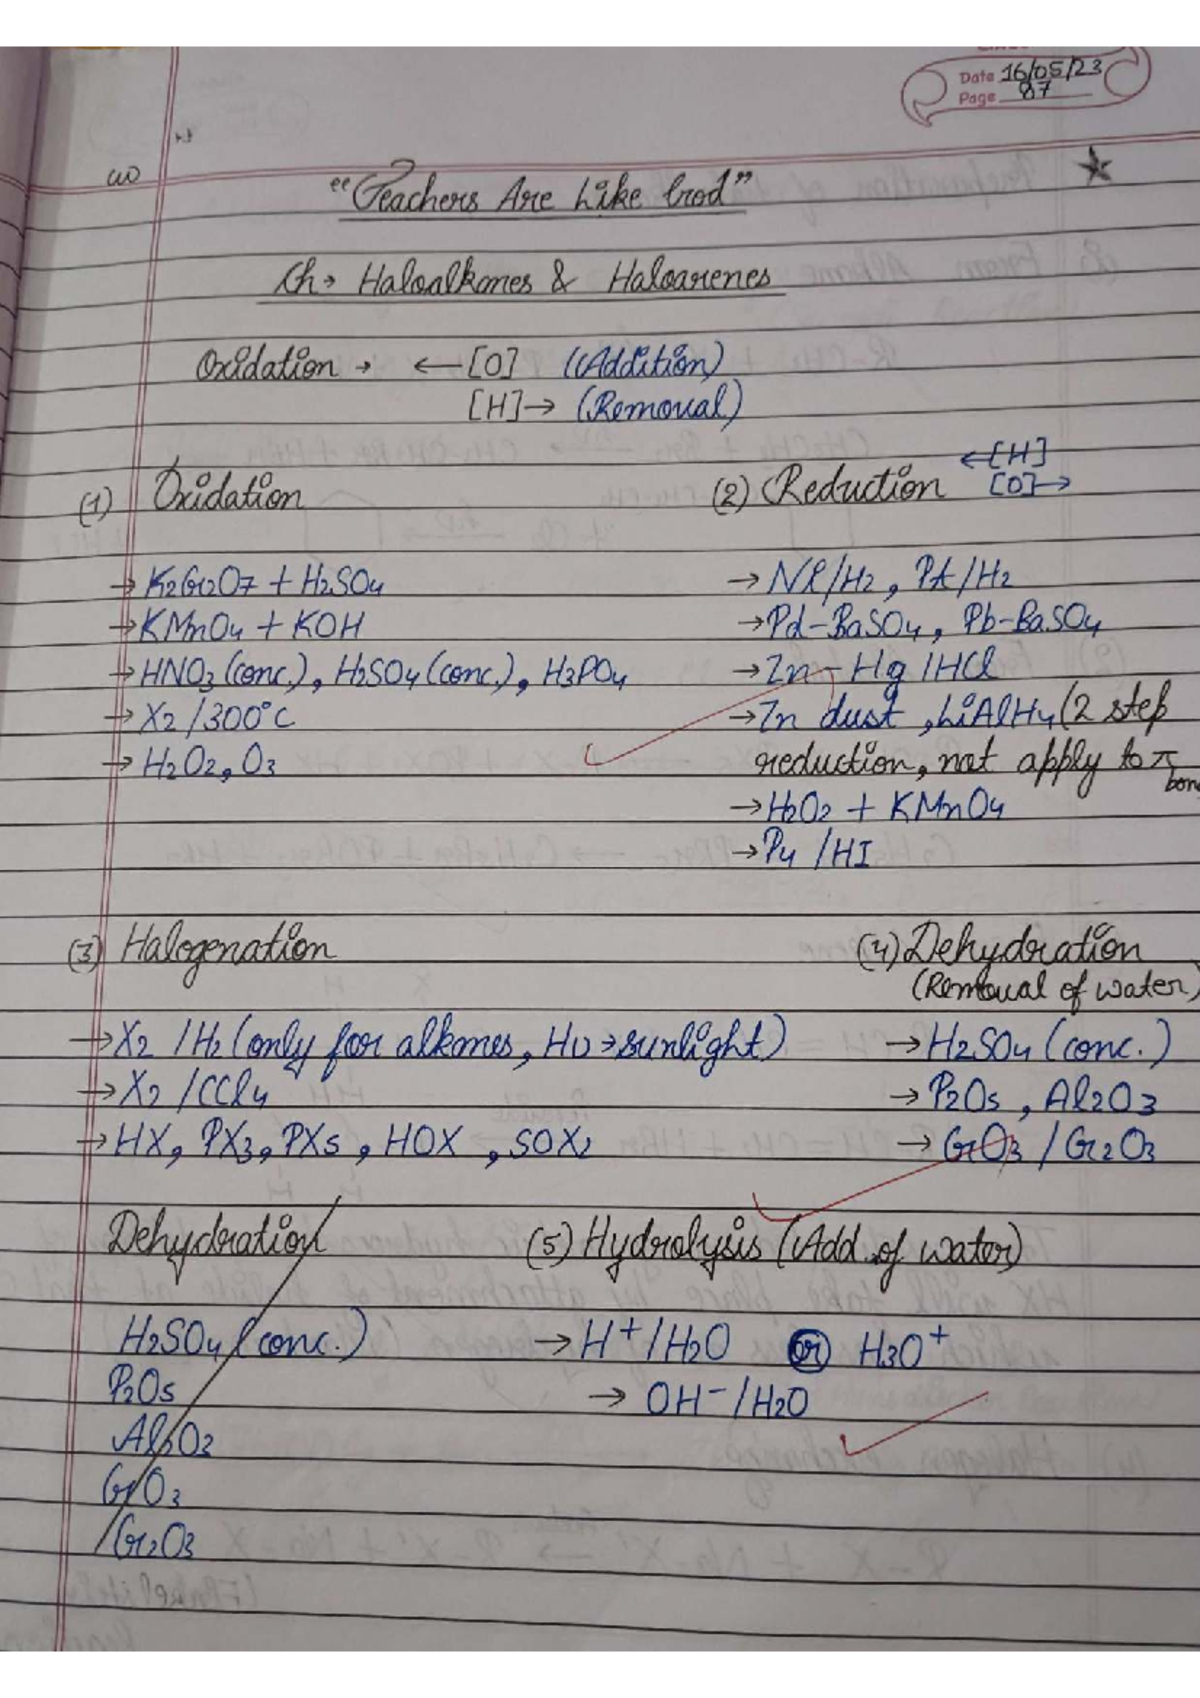 Date 16/05/23
Page 87
"Teachers Are Like God"
Ch→ Haloalkanes & Haloarenes
Oxidation → ←[O] (Addition)
[H]→ (Removal)
(1) Oxidation
(2) Reduction ←[H]
[O]→
→ K2Cr2O7 + H2SO4
→ KMnO4 + KOH
→ HNO3 (conc.), H2SO4 (conc.), H3PO4
→ X2 /300°C
→ H2O2, O3
→ Ni/H2, Pt/H2
→ Pd-BaSO4, Pb-BaSO4
→ Zn-Hg/HCl
→ Zn dust, LiAlH4 (2 step
reduction, not apply to π
bond
→ H2O2 + KMnO4
→ P4 /HI
(3) Halogenation
(4) Dehydration
(Removal of water)
→ X2 /H2 (only for alkanes, Hυ→sunlight)
→ X2 /CCl4
→ HX, PX3, PX5, HOX, SOX2
→ H2SO4 (conc.)
→ P2O5, Al2O3
→ CrO3 / Cr2O3
Dehydration
H2SO4 (conc.)
P2O5
Al2O3
CrO3
/Cr2O3
(5) Hydrolysis (Add. of water)
→ H+/H2O or H3O+
→ OH-/H2O